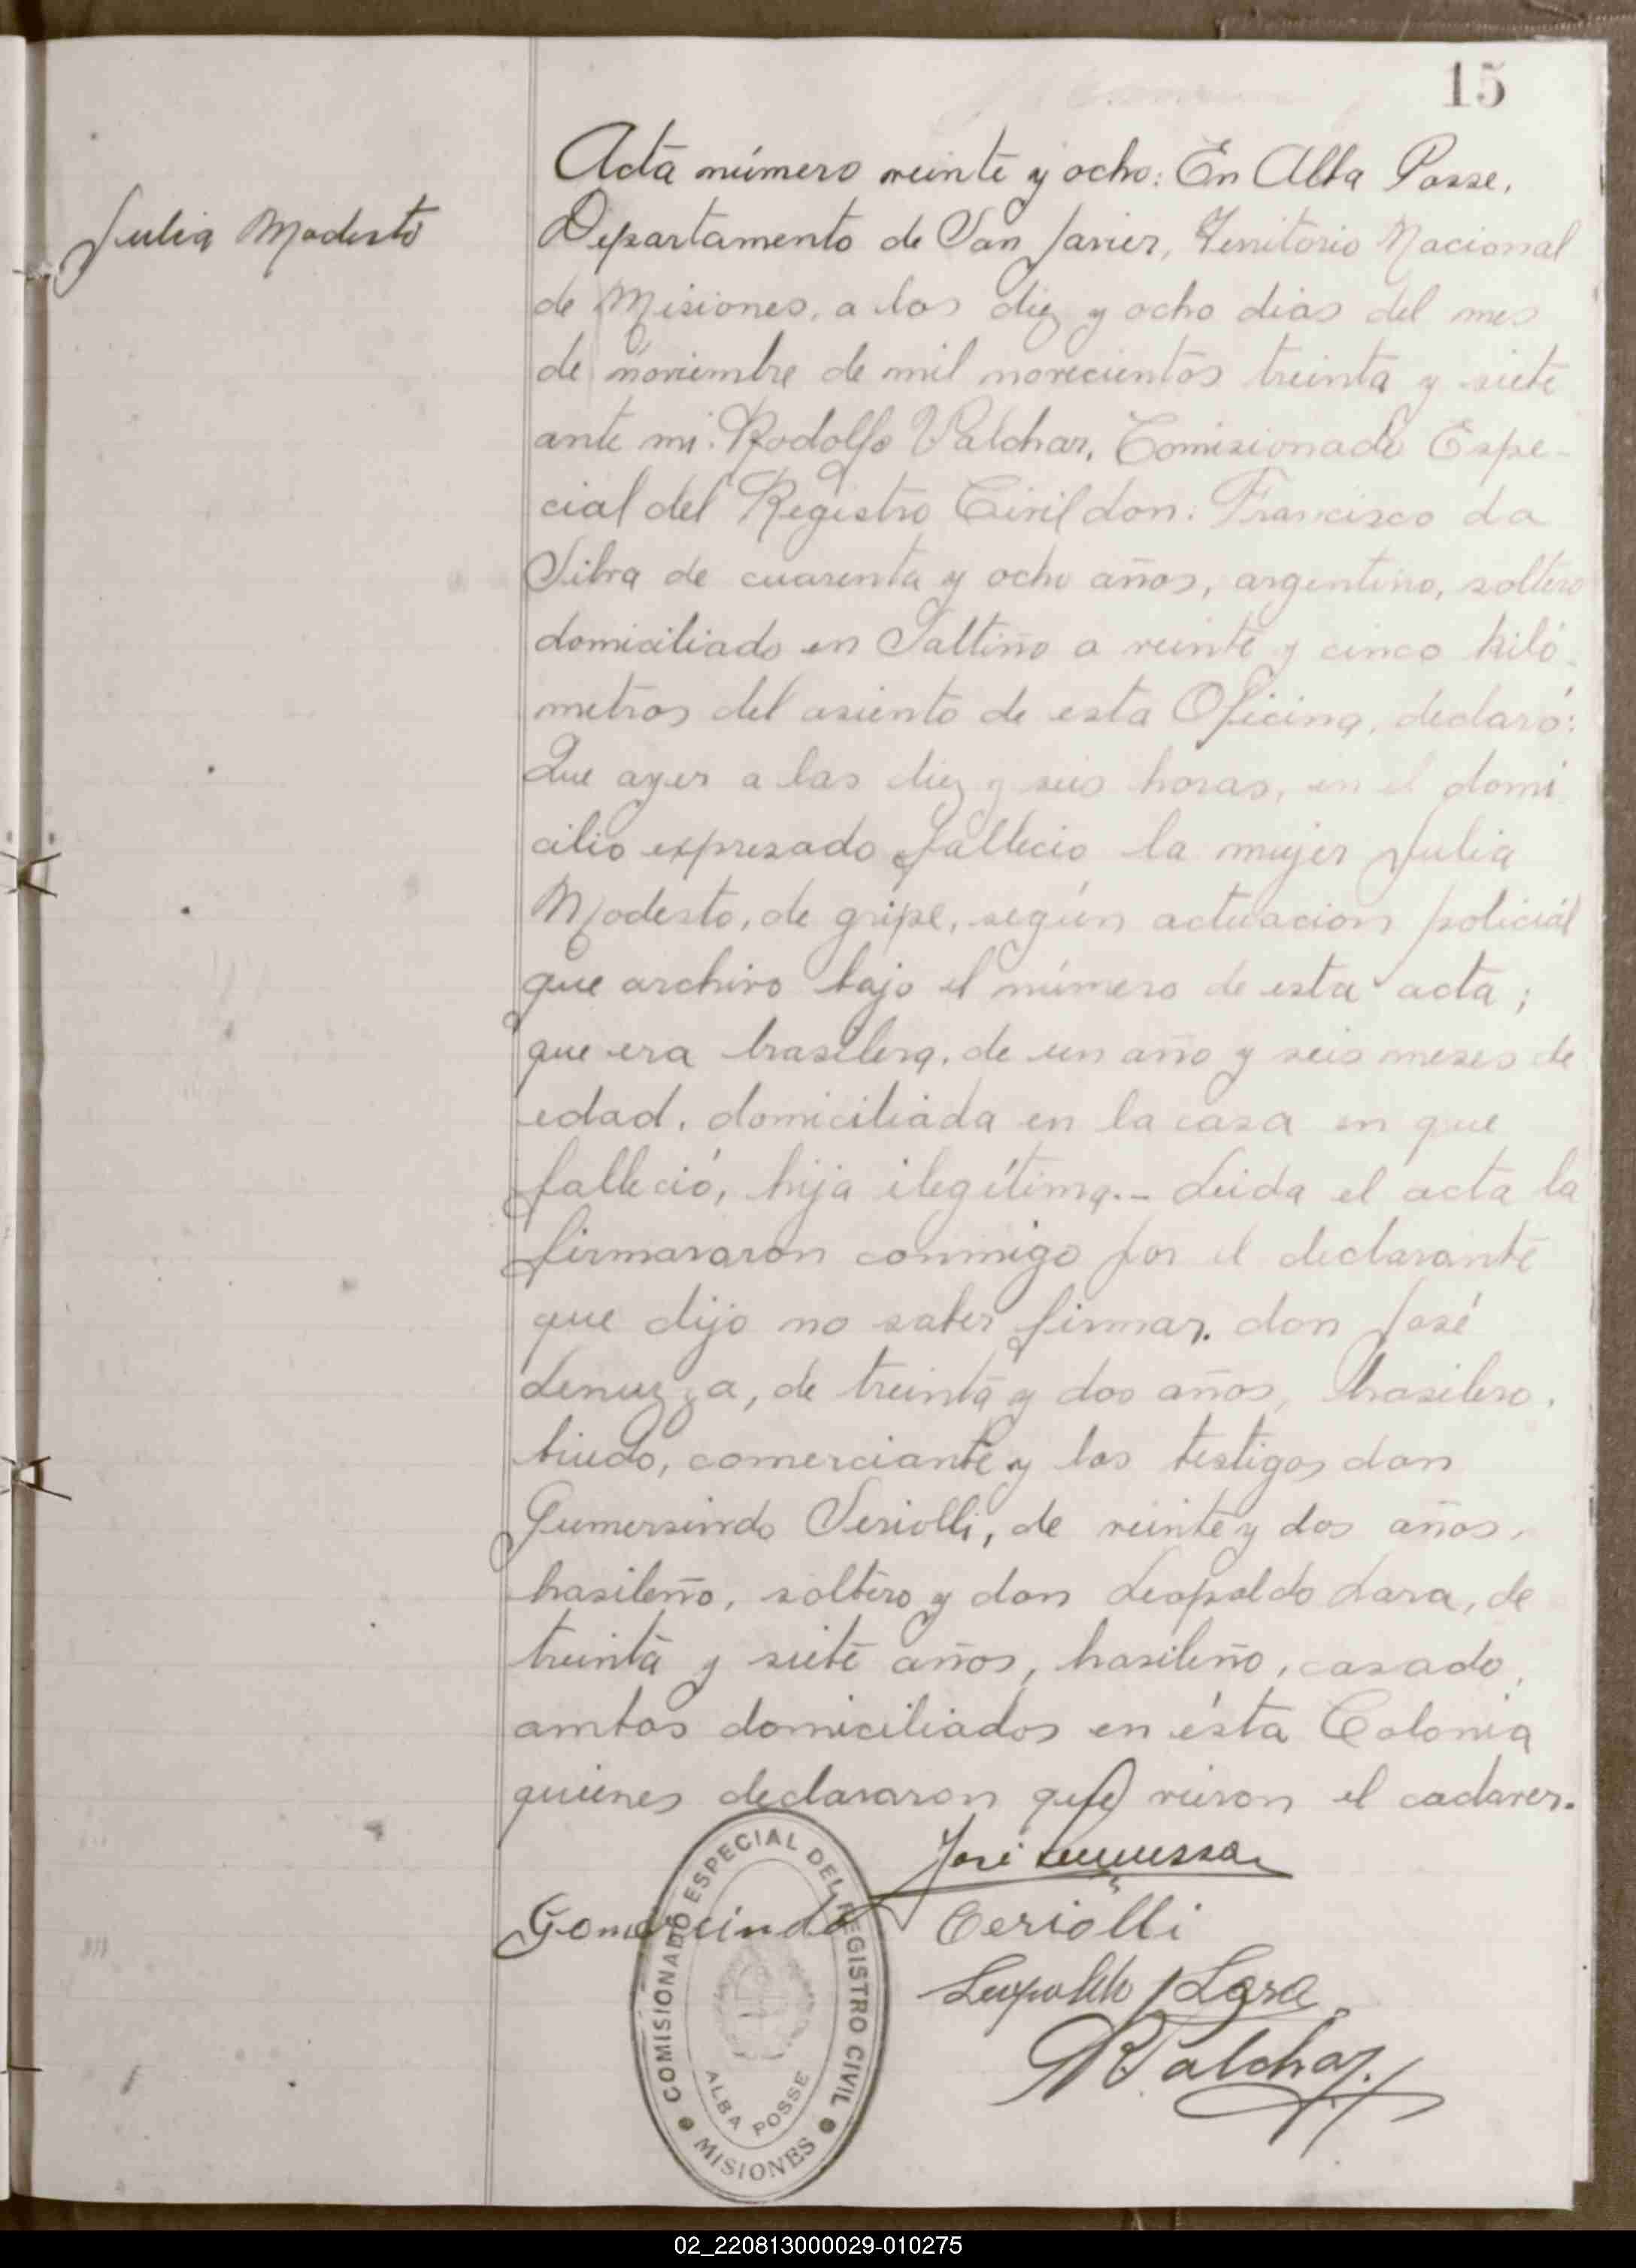 15
Julia Modesto
Acta número veinte y ocho: En Alba Posse,
Departamento de San Javier, Territorio Nacional
de Misiones, a los diez y ocho dias del mes
de noviembre de mil novecientos treinta y siete
ante mi: Rodolfo Valchar, Comisionado Espe-
cial del Registro Civil don: Francisco da
Silva de cuarenta y ocho años, argentino, soltero
domiciliado en Saltiño a veinte y cinco kiló-
metros del asiento de esta Oficina, declaró:
Que ayer a las diez y seis horas, en el domi
cilio expresado fallecio la mujer Julia
Modesto, de gripe, según actuacion policial
que archivo bajo el número de esta acta;
que era brasilera, de un año y seis meses de
edad, domiciliada en la casa en que
falleció, hija ilegítima.- Leida el acta la
firmararon conmigo por el declarante
que dijo no saber firmar, don José
Lenuzza, de treinta y dos años, brasilero,
biudo, comerciante y los testigos don
Gumersindo Seriolli, de veinte y dos años,
brasileño, soltero y don Leopoldo Lara, de
treinta y siete años, brasileño, casado,
ambos domiciliados en ésta Colonia
quienes declararon que vieron el cadaver.
José Lenussa
Gomercindo Ceriolli
Leopoldo Lara
R Valchar
COMISIONADO ESPECIAL DEL REGISTRO CIVIL
ALBA POSSE
MISIONES
02_220813000029-010275